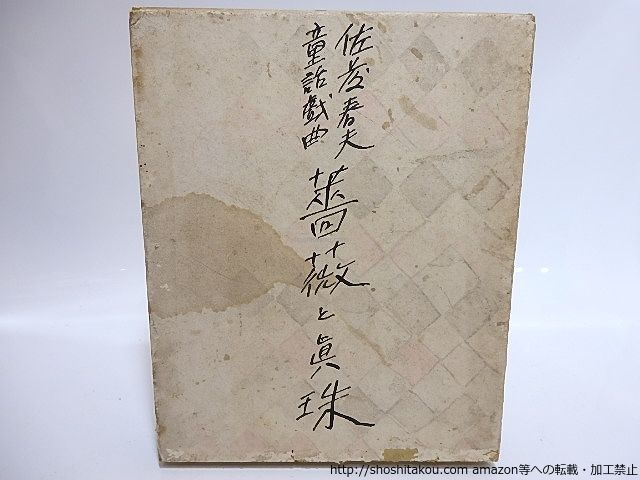 佐藤春夫
童話戯曲
薔薇と眞珠
http://shoshitakou.com amazon等への転載・加工禁止